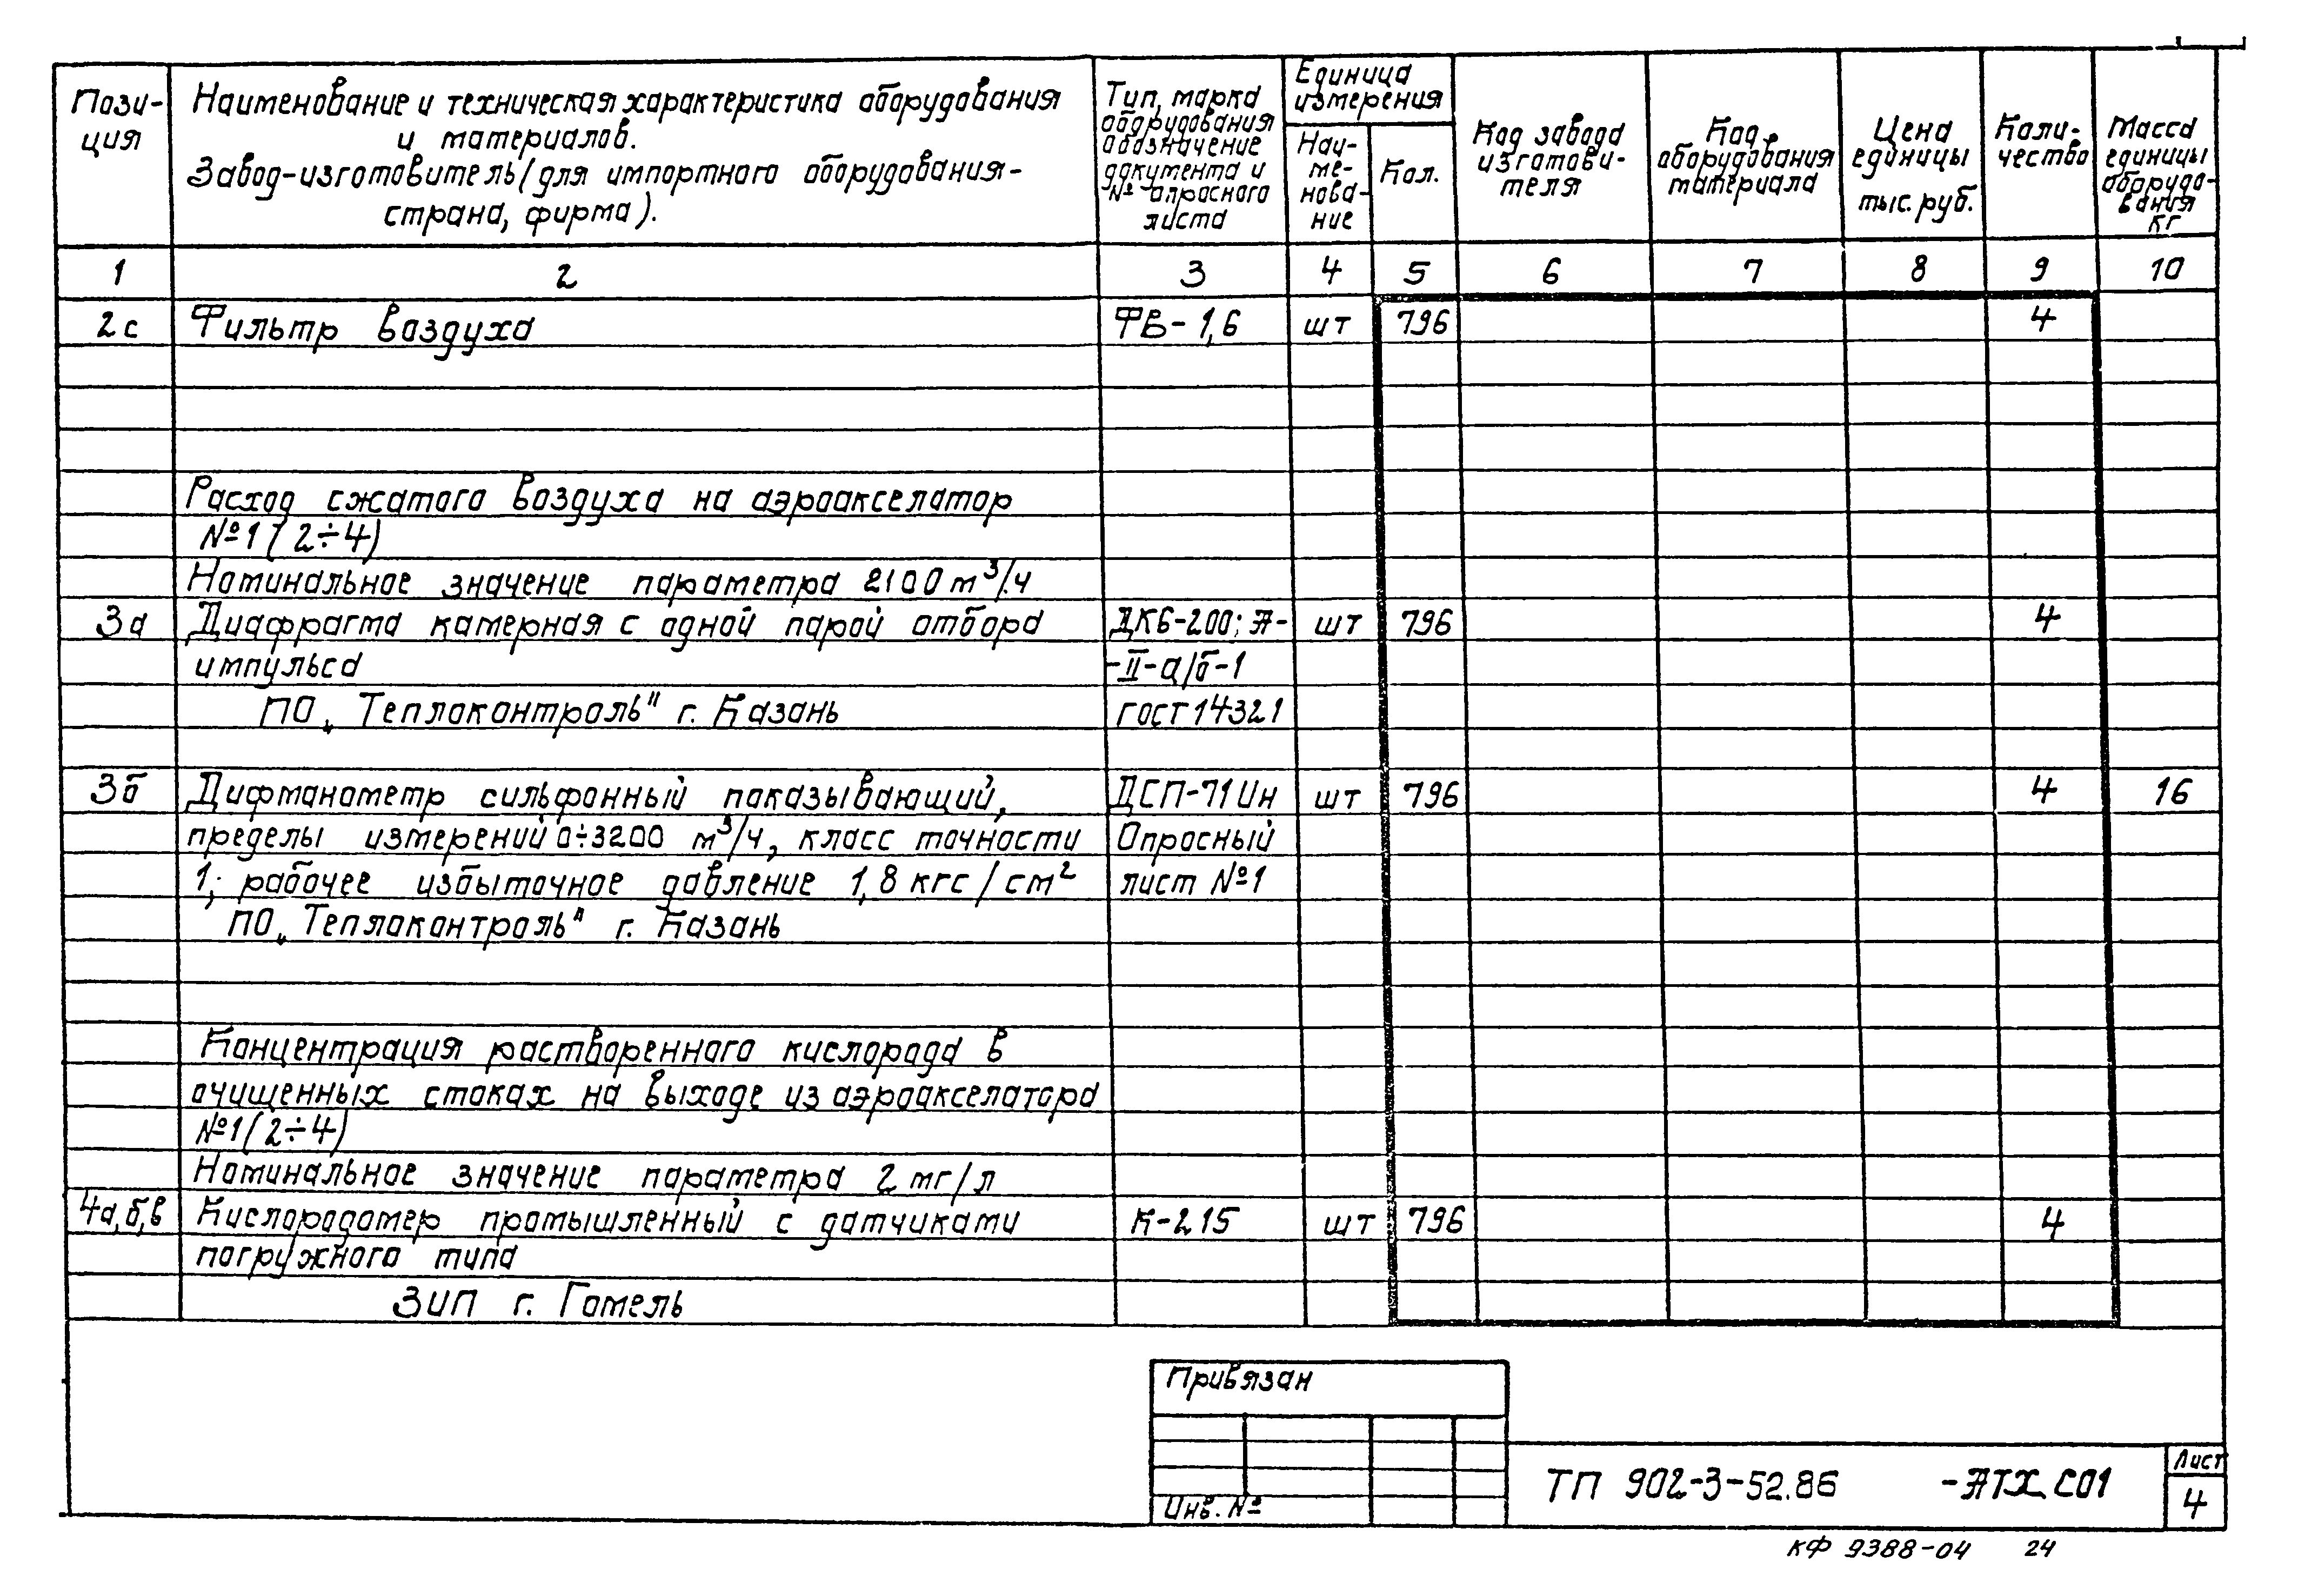 Пози-
ция
Наименование и техническая характеристика оборудования
и материалов.
Завод-изготовитель (для импортного оборудования-
страна, фирма).
Тип, марка
оборудования
Обозначение
документа и
№ опросного
листа
Единица
измерения
Наи-
ме-
нова-
ние
Кол.
Код завода
изготови-
теля
Код
оборудования
материала
Цена
единицы
тыс. руб.
Коли-
чество
Масса
единицы
оборудо-
вания
кг
1 2 3 4 5 6 7 8 9 10
2с Фильтр воздуха ФВ-1,6 шт 796 4
Расход сжатого воздуха на аэроакселатор
№1 (2÷4)
Номинальное значение параметра 2100 м³/ч
3а Диафрагма камерная с одной парой отбора ДК6-200; А- шт 796 4
импульса -II-а/б-1
ПО „Теплоконтроль" г. Казань ГОСТ 14321
3б Дифманометр сильфонный показывающий, ДСП-71Ин шт 796 4 16
пределы измерений 0÷3200 м³/ч, класс точности Опросный
1; рабочее избыточное давление 1,8 кгс/см² лист №1
ПО „Теплоконтроль" г. Казань
Концентрация растворенного кислорода в
очищенных стоках на выходе из аэроакселатора
№1 (2÷4)
Номинальное значение параметра 2 мг/л
4а,б,в Кислородомер промышленный с датчиками К-215 шт 796 4
погружного типа
ЗИП г. Гомель
Привязан
Инв. №
ТП 902-3-52.86 -АТХ.СО1
Лист
4
КФ 9388-04 24